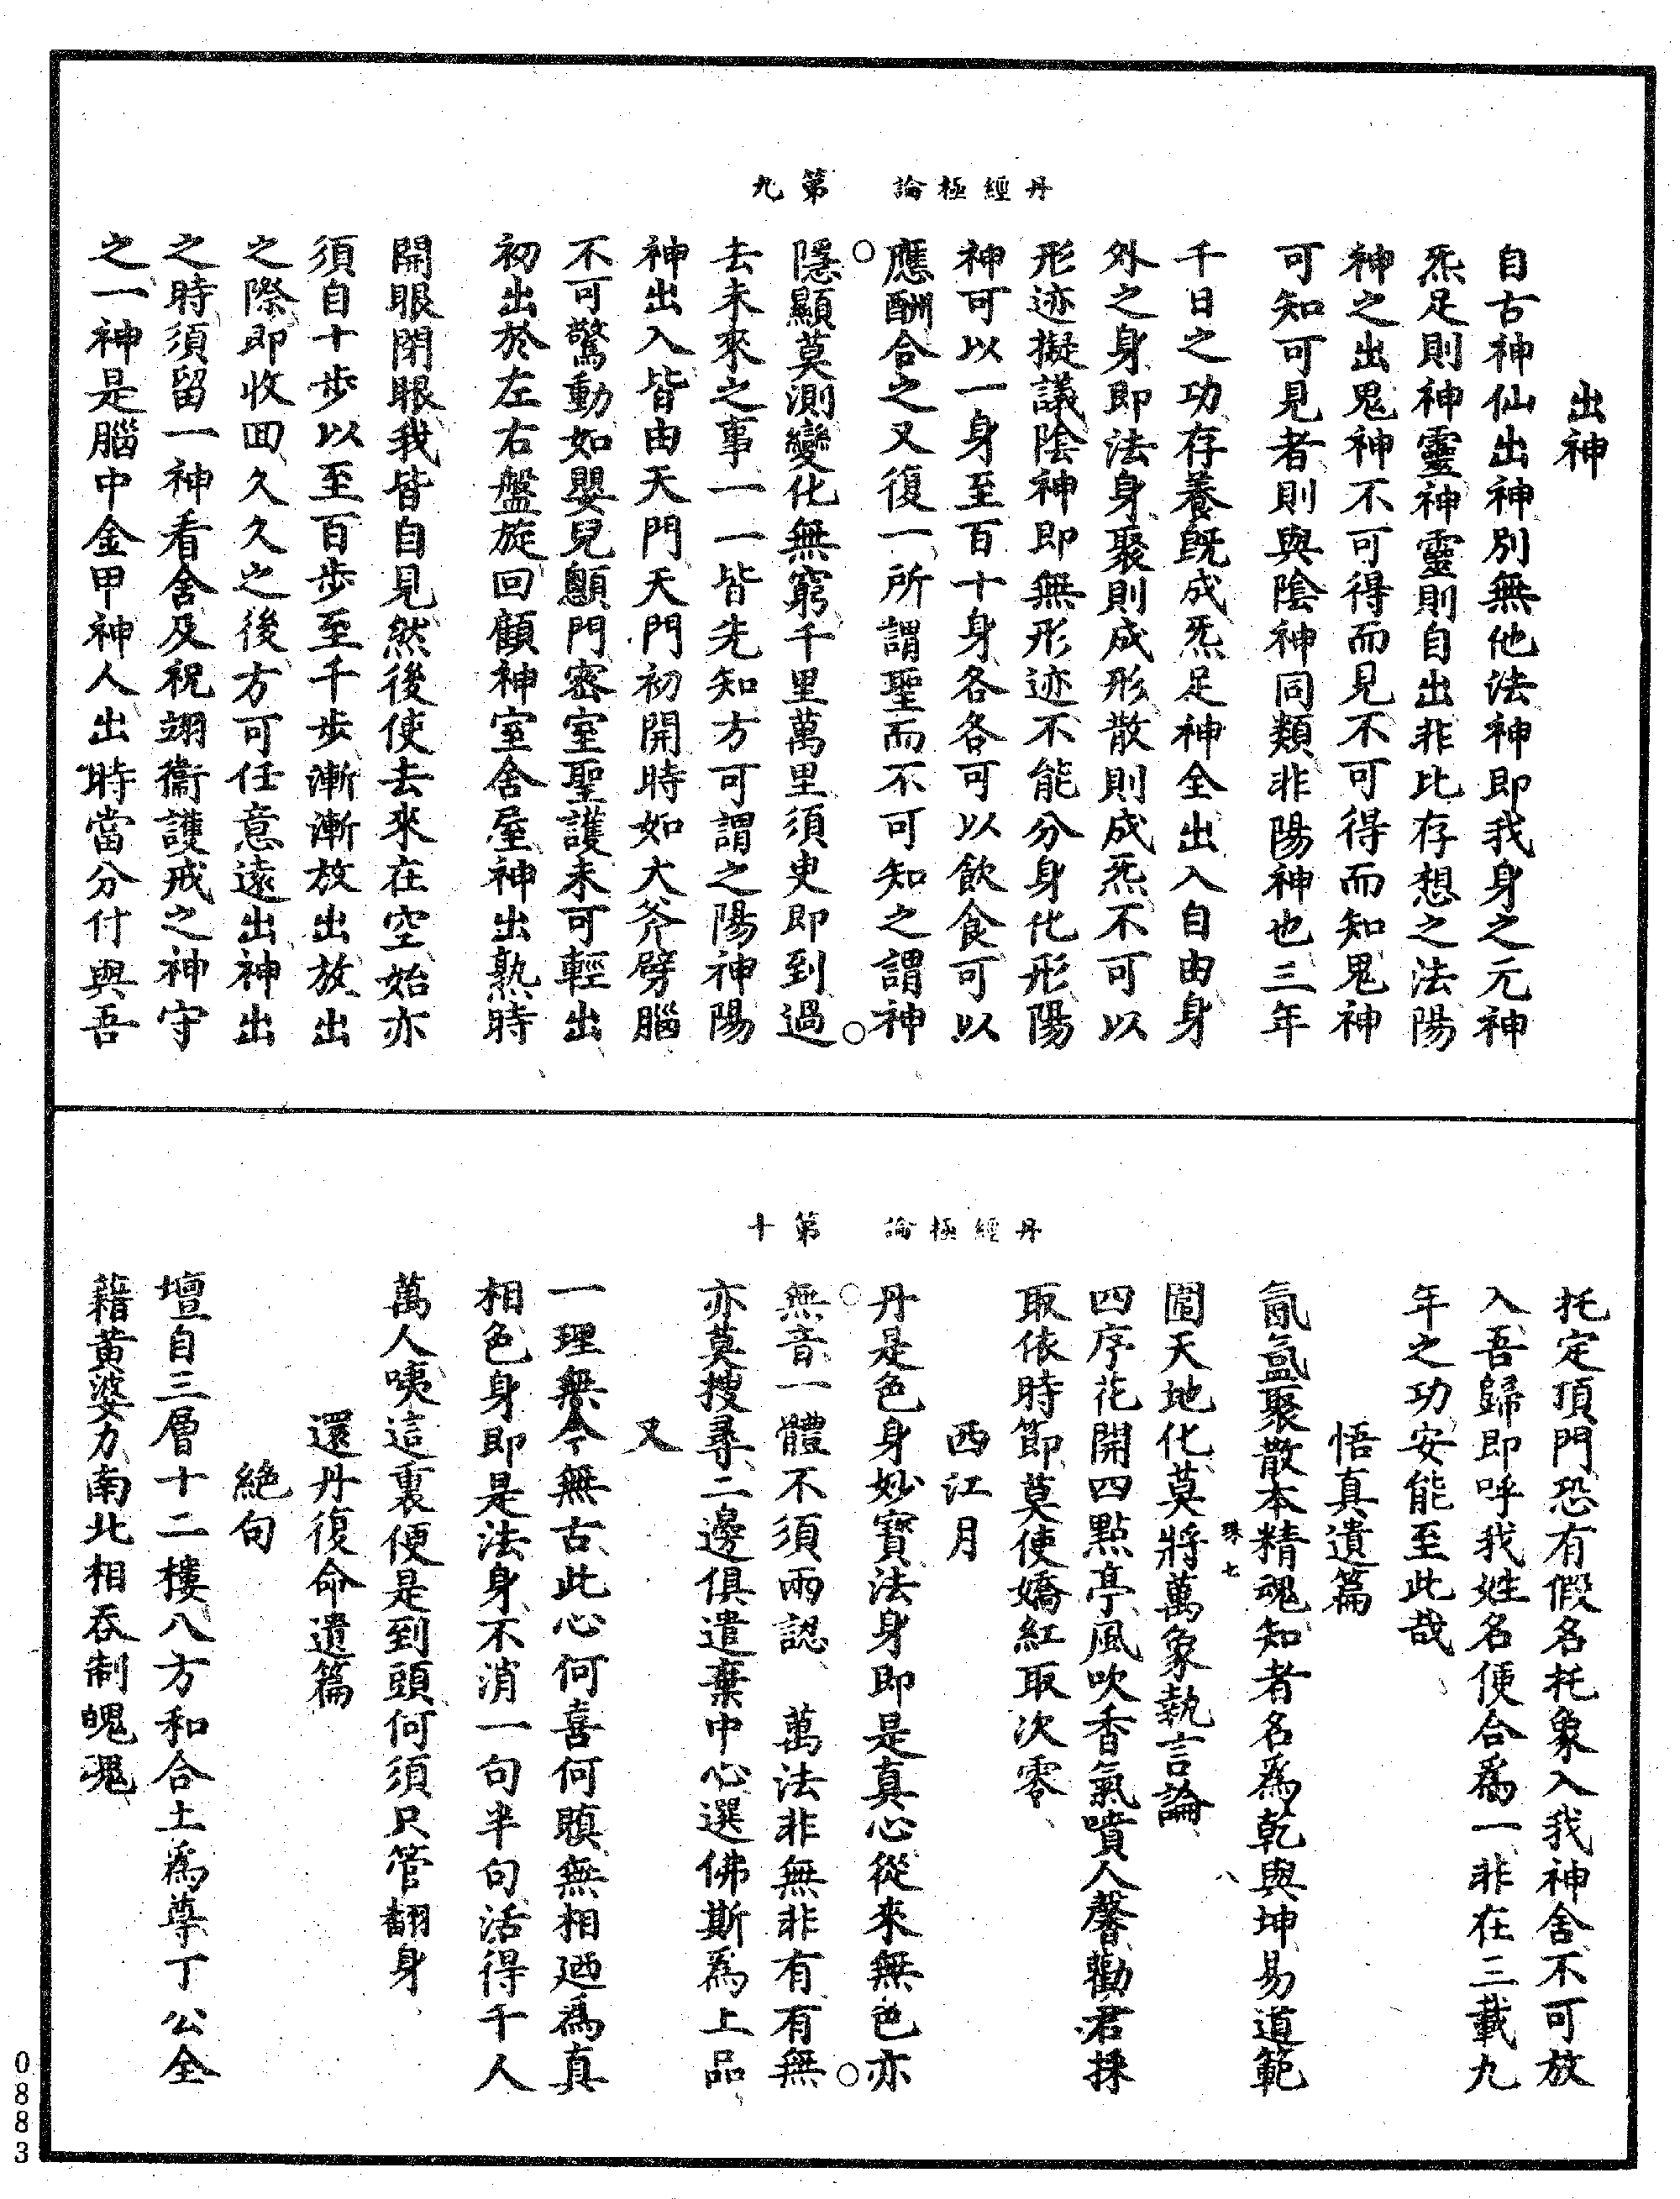 出神
自古神仙出神別無他法神即我身之元神
炁足則神靈神靈則自出非比存想之法陽
神之出鬼神不可得而見不可得而知鬼神
可知可見者則與陰神同類非陽神也三年
千日之功存養既成炁足神全出入自由身
外之身即法身聚則成形散則成炁不可以
形迹擬議陰神即無形迹不能分身化形陽
神可以一身至百十身各各可以飲食可以
應酬合之又復一所謂聖而不可知之謂神
丹經極論　第九
隱顯莫測變化無窮千里萬里須臾即到過
去未來之事一一皆先知方可謂之陽神陽
神出入皆由天門天門初開時如大斧劈腦
不可驚動如嬰兒顖門密室聖護未可輕出
初出於左右盤旋回顧神室舍屋神出熟時
開眼閉眼我皆自見然後使去來在空始亦
須自十步以至百步至千步漸漸放出放出
之際即收回久久之後方可任意遠出神出
之時須留一神看舍及祝翊衞護戒之神守
之一神是腦中金甲神人出時當分付與吾
托定頂門恐有假名托象入我神舍不可放
入吾歸即呼我姓名便合爲一非在三載九
年之功安能至此哉
悟真遺篇
氤氳聚散本精魂知者名爲乾與坤易道範
珠七　八
圍天地化莫將萬象執言論
四序花開四點亭風吹香氣噴人馨勸君採
取依時節莫使嬌紅取次零
西江月
丹是色身妙寶法身即是真心從來無色亦
丹經極論　第十
無音一體不須兩認　萬法非無非有有無
亦莫搜尋二邊俱遣棄中心選佛斯爲上品
又
一理無今無古此心何喜何瞋無相廼爲真
相色身即是法身不消一句半句活得千人
萬人咦這裏便是到頭何須只管翻身
還丹復命遺篇
絕句
壇自三層十二樓八方和合土爲尊丁公全
藉黃婆力南北相吞制魄魂
0883